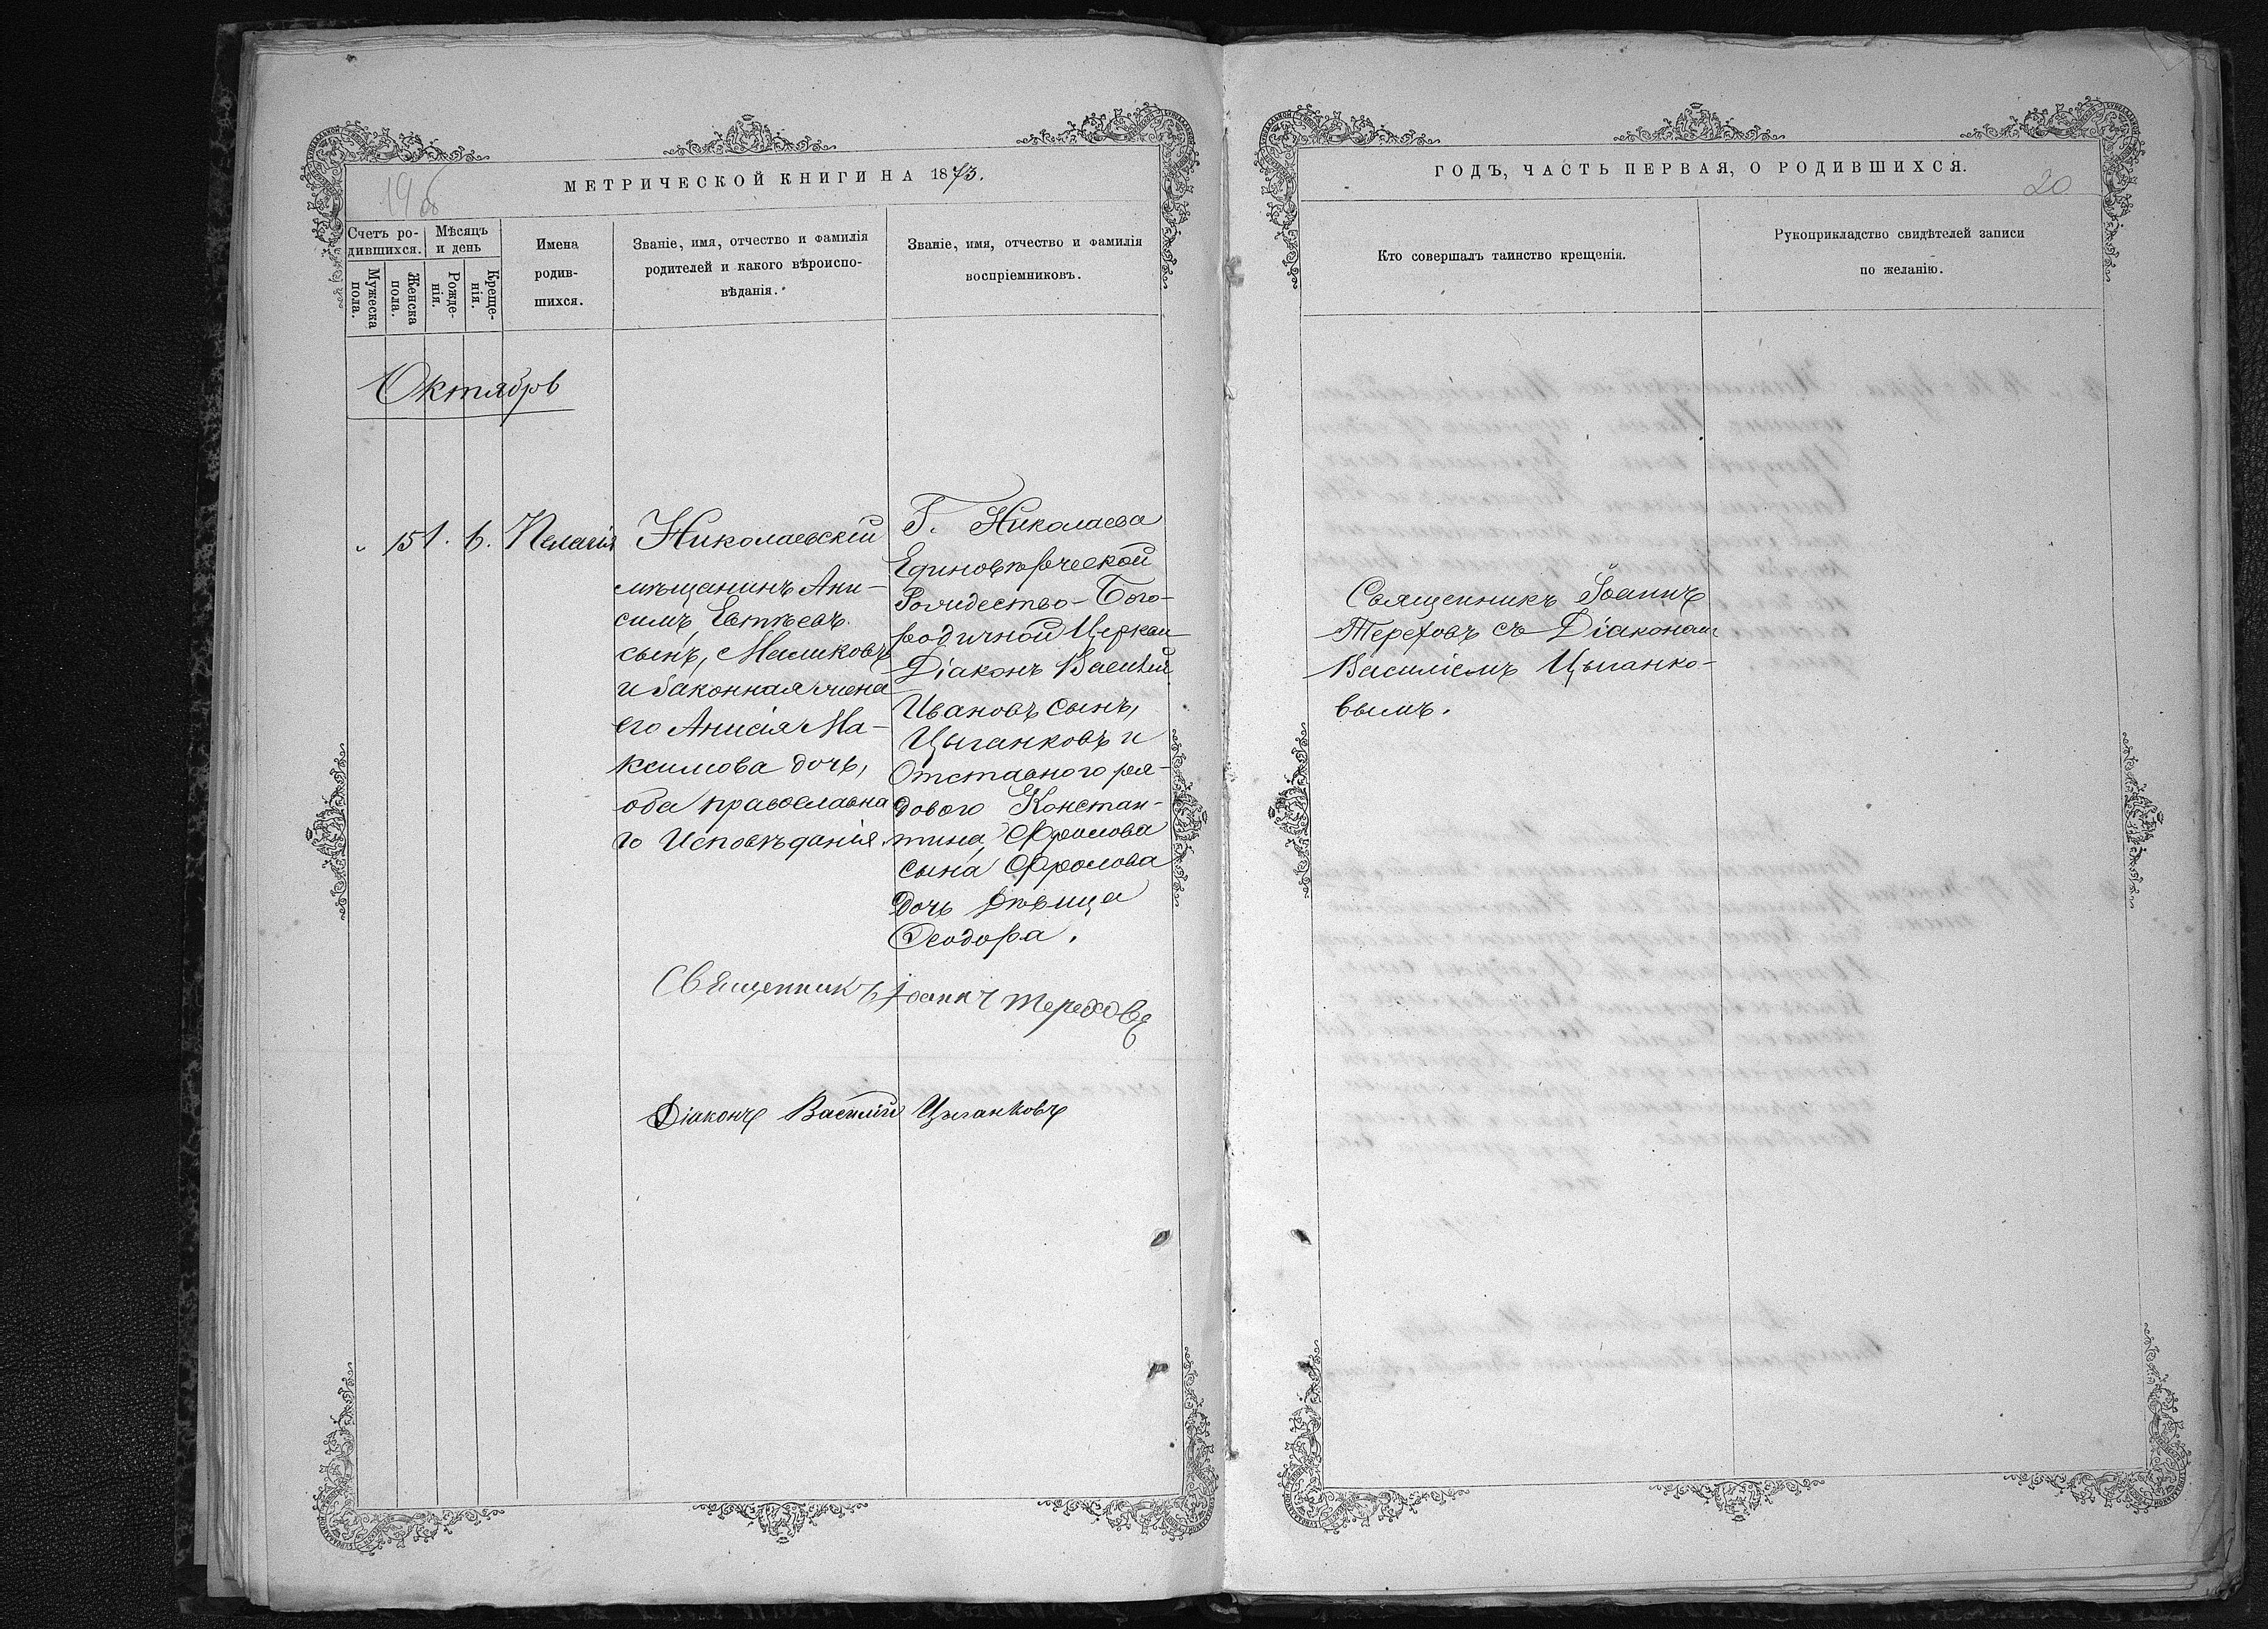 19 об
МЕТРИЧЕСКОЙ КНИГИ НА 1873.
Счетъ ро-
дившихся.
Мѣсяцъ
и день
Мужеска
пола.
Женска
пола.
Рожде-
нія.
Креще-
нія.
Имена
родив-
шихся.
Званіе, имя, отчество и фамилія
родителей и какого вѣроиспо-
вѣданія.
Званіе, имя, отчество и фамилія
воспріемниковъ.
Октябрь
" 15 1. 6. Пелагія
Николаевскій
мѣщанинъ Ани-
симъ Евтѣевъ
сынъ, Маликовъ
и законная жена
его Анисія Ма-
ксимова дочь,
оба православна
го Исповѣданія.
Г. Николаева
Единовѣрческой
Рождество-Бого-
родичной Церкви
Діаконъ Василій
Ивановъ сынъ,
Цыганковъ и
Отставного ря-
дового Констан-
тина, Фролова
сына Фролова
дочь дѣвица
Ѳеодора.
Священникъ Іоаннъ Тереховъ
Діаконъ Василій Цыганковъ
ГОДЪ, ЧАСТЬ ПЕРВАЯ, О РОДИВШИХСЯ.
20
Кто совершалъ таинство крещенія.
Рукоприкладство свидѣтелей записи
по желанію.
Священникъ Іоаннъ
Тереховъ съ Діакономъ
Василіемъ Цыганко-
вымъ.